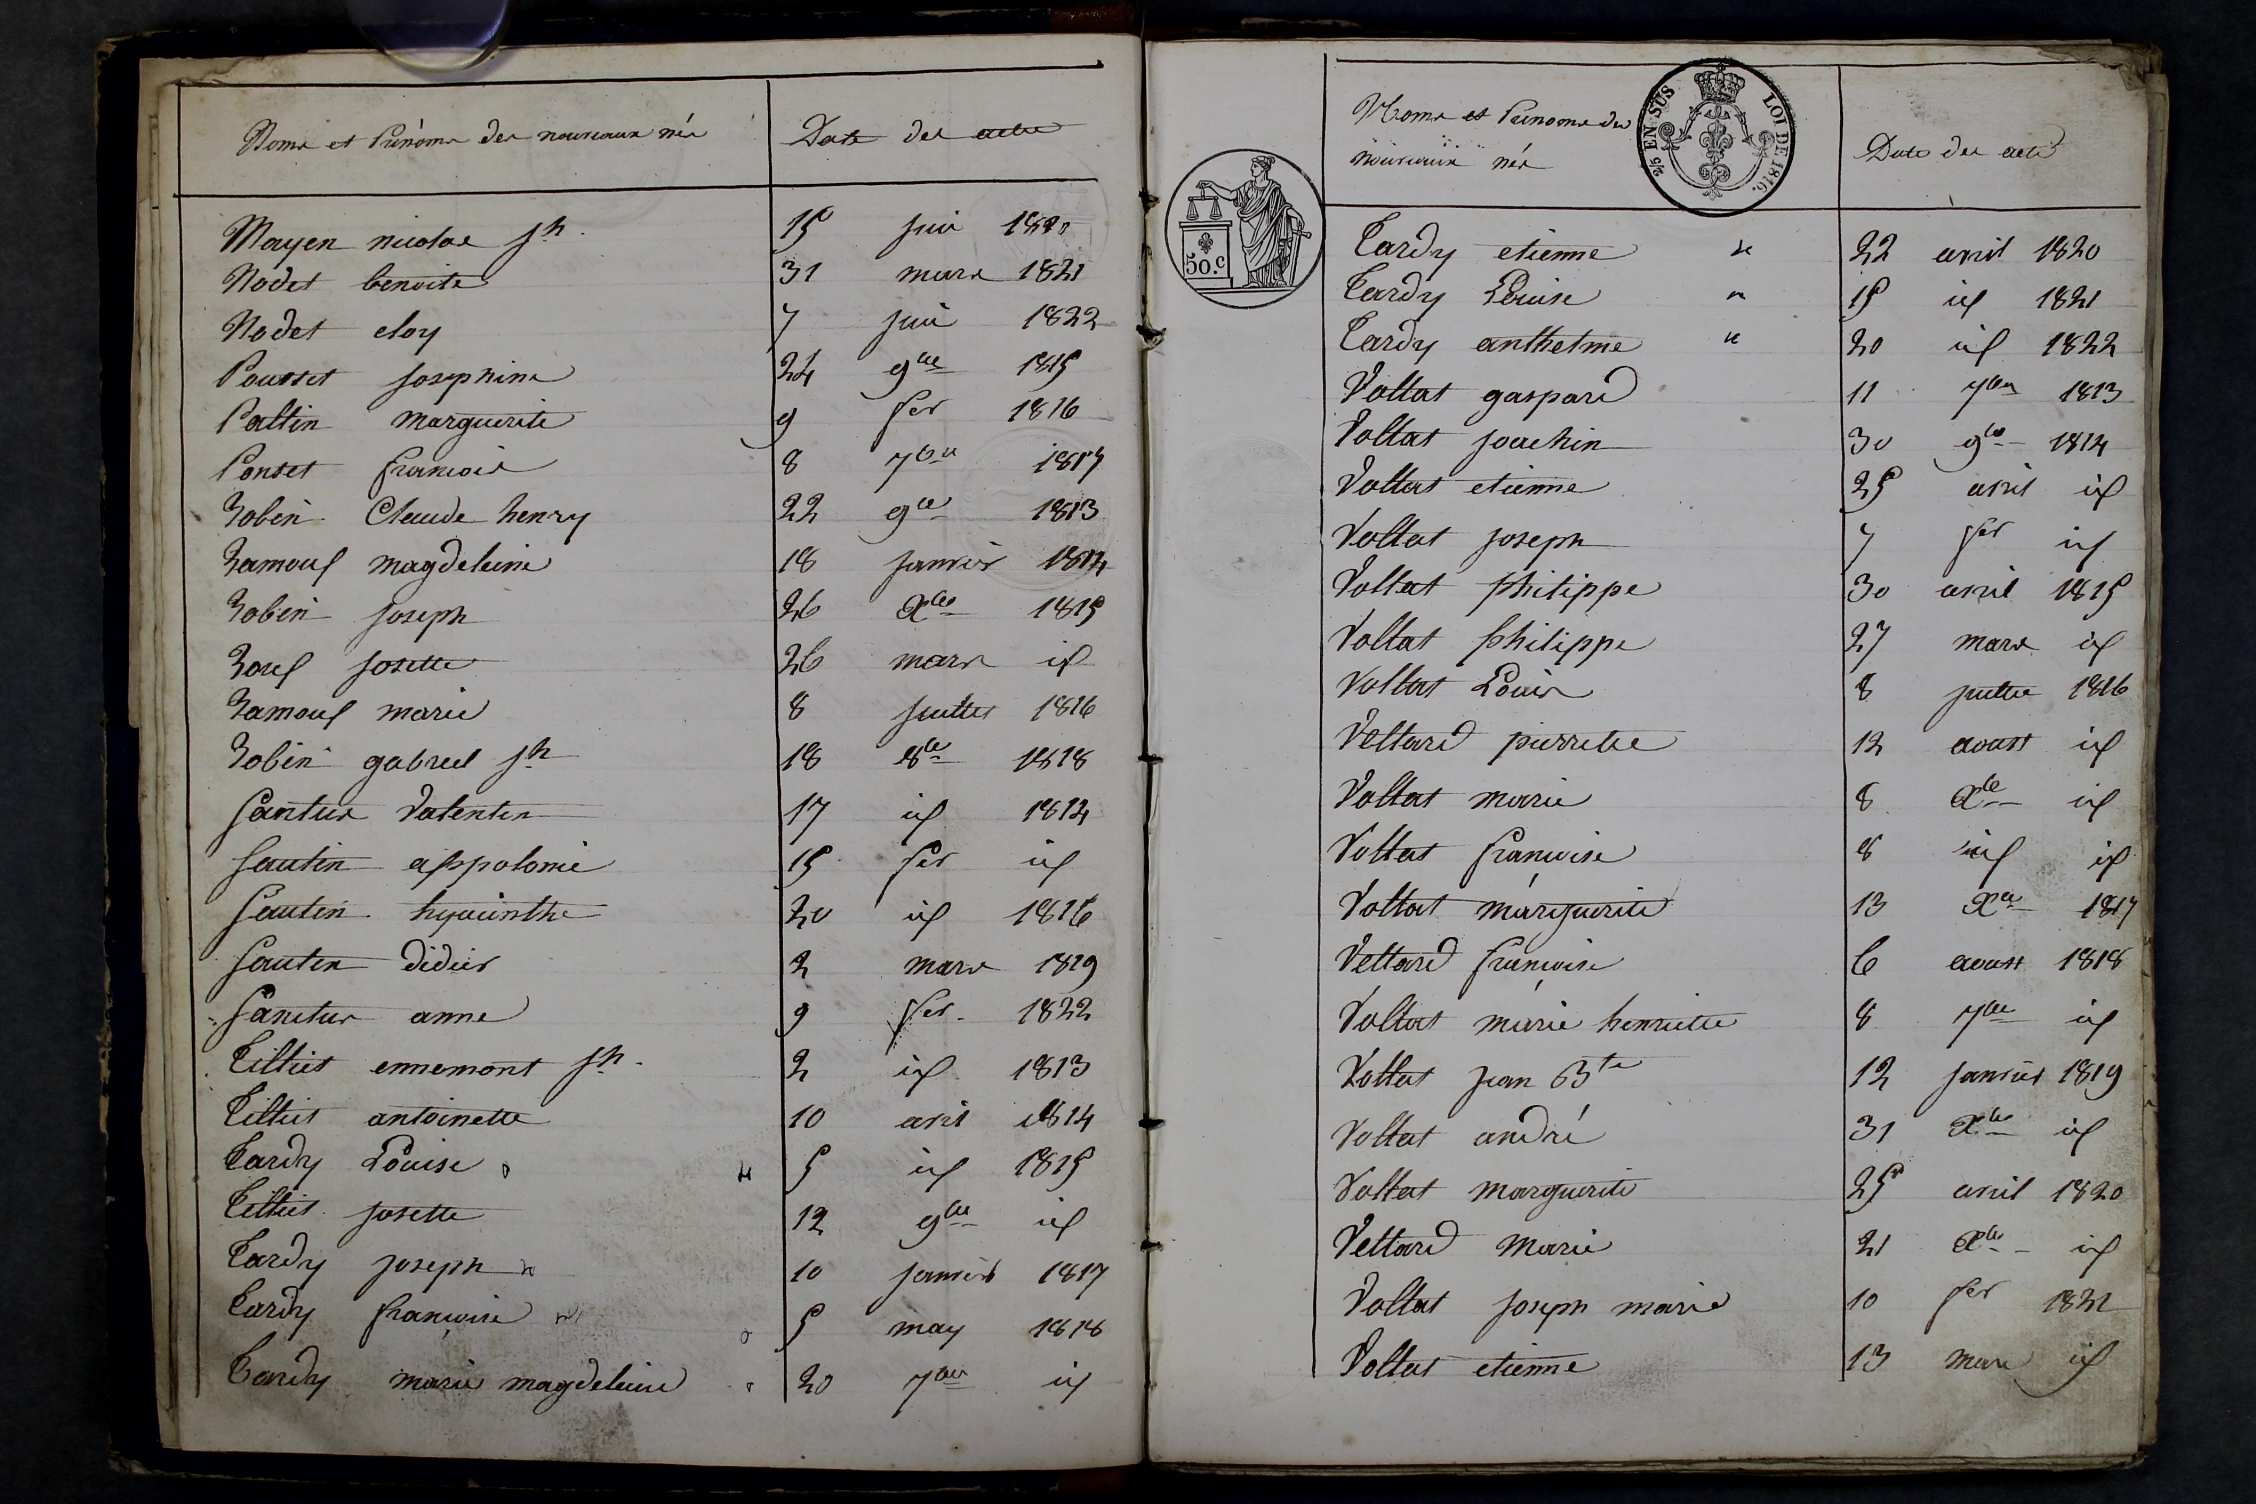 Noms et Prénoms des nouveaux nés Date des actes
Mayen nicolas jh 15 juin 1820
Nodet benoite 31 mars 1821
Nodet eloy 7 juin 1822
Pousset josephine 24 9bre 1815
Paltin marguerite 9 fer 1816
Ponset francois 8 7bre 1817
Robin Claude henry 22 9bre 1813
Ramouf magdeleine 18 janvier 1814
Robin joseph 26 Xbre 1815
josette 26 mars id
Ramouf marie 8 juillet 1816
Robin gabriel jh 18 8bre 1818
Santus Valentin 17 id 1814
Sautin appolonie 15 fer id
Sautin hyacinthe 20 id 1816
Sautin didier 2 mars 1819
anne 9 fer 1822
Tilliet ennemont jh 2 id 1813
Tilliet antoinette 10 avril 1814
Tardy Louise 5 id 1815
Tilliet josette 12 9bre id
Tardy joseph 10 janvier 1817
Tardy françoise 5 may 1818
Tardy marie magdeleine 20 7bre id
Noms et Prénoms des
nouveaux nés
Date des actes
2/5 EN SUS LOI DE 1816.
50.c
Tardy etienne 22 avril 1820
Tardy Louise 15 id 1821
Tardy anthelme 20 id 1822
Vollat gaspard 11 7bre 1813
Vollat joachin 30 9bre 1814
Vollat etienne 25 avril id
Vollat joseph 7 fer id
Vollat philippe 30 avril 1815
Vollat philippe 27 mars id
Vollat Louis 8 juillet 1816
Vettard pierrette 12 aoust id
Vollat marie 8 Xbre id
Vollat françoise 8 id id
Vollat marguerite 13 Xbre 1817
Vettard françoise 6 aoust 1818
Vollat marie henriette 8 7bre id
Vollat jean Bte 12 janvier 1819
Vollat andré 31 Xbre id
Vollat marguerite 25 avril 1820
Vettard Marie 21 Xbre id
Vollat joseph marie 10 fer 1821
Vollat etienne 13 mars id